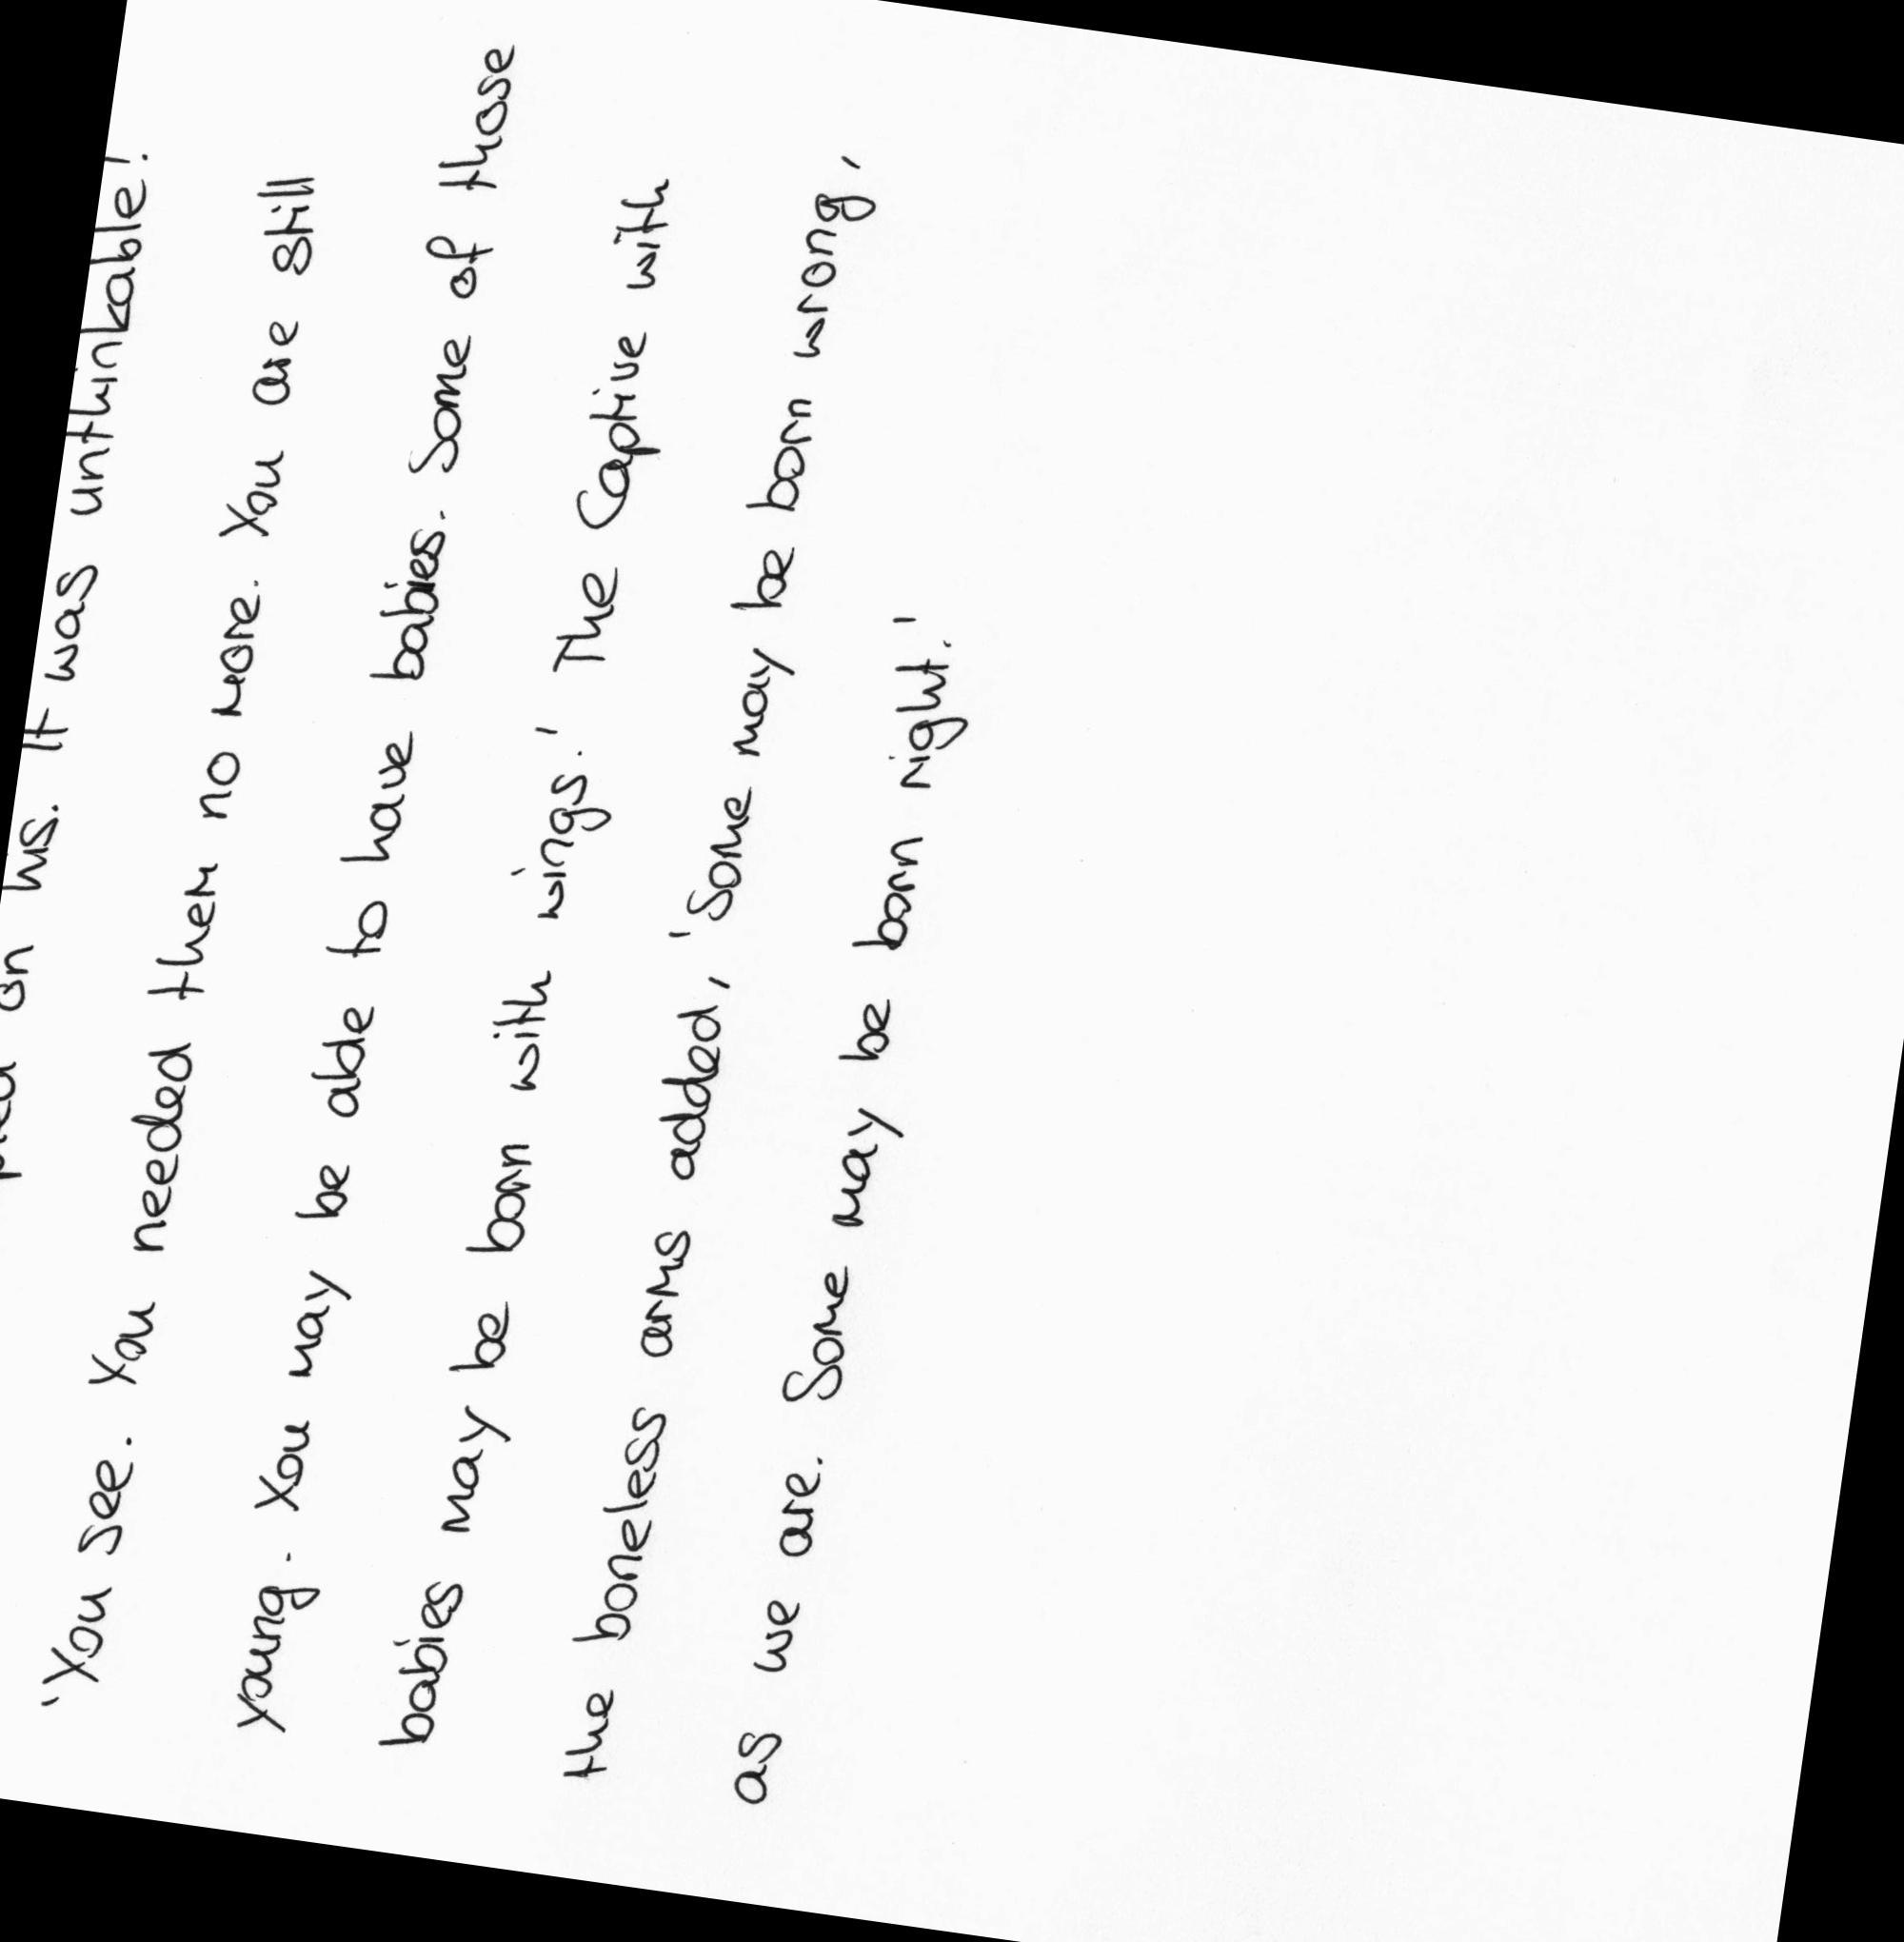 on us. It was unthinkable!
'You see. You needed them no more. You are still
young. You may be able to have babies. Some of those
babies may be born with wings.' The Captive with
the boneless arms added, 'Some may be born wrong,
as we are. Some may be born right.'